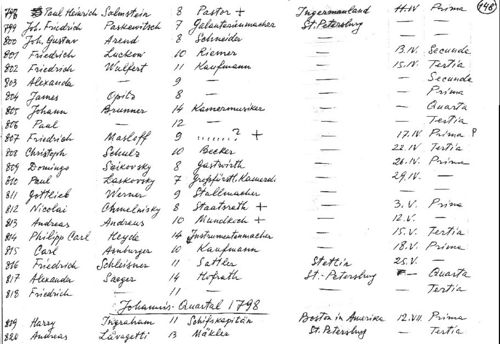 798 Paul Heinrich Salmstein 8 Pastor + Ingermanland 11.IV Prima 148
799 Joh. Friedrich Paskewitsch 7 Galanteriemacher St. Petersburg — —
800 Joh. Gustav Arend 8 Schneider — — —
801 Friedrich Luckow 10 Riemer — 13.IV. Secunda
802 Friedrich Wulfert 11 Kaufmann — 15.IV. Tertia
803 Alexander — 9 — — — Secunda
804 James Opitz 8 — — — Prima
805 Johann Brunner 14 Kamermusiker — — Quarta
806 Paul — 12 — — — Tertia
807 Friedrich Masloff 9 ........? + — 17.IV Prima ?
808 Christoph Schulz 10 Becker — 22.IV Tertia
809 Domingo Saikovsky 8 Gastwirth — 26.IV. Prima
810 Paul Laskovsky 7 Großfürstl. Kamerd. — 29.IV. —
811 Gottlieb Werner 9 Stallmacher — — —
812 Nicolai Chmelnisky 8 Staatsrath + — 3.V. Prima
813 Andreas Andreus 10 Mundkoch + — 12.V. —
814 Philipp Carl Heyde 14 Instrumentenmacher — 15.V. Tertia
815 Carl Arnburger 10 Kaufmann — 18.V. Prima
816 Friedrich Schleisner 11 Sattler Stettin 25.V. —
817 Alexander Saeger 14 Hofrath St.-Petersburg — Quarta
818 Friedrich — 11 — — — Tertia
Johannis-Quartal 1798
819 Harry Ingraham 11 Schifskapitän Boston in Amerika 12.VII. Prima
820 Andreas Lavagetti 13 Mäkler St. Petersburg — Tertia